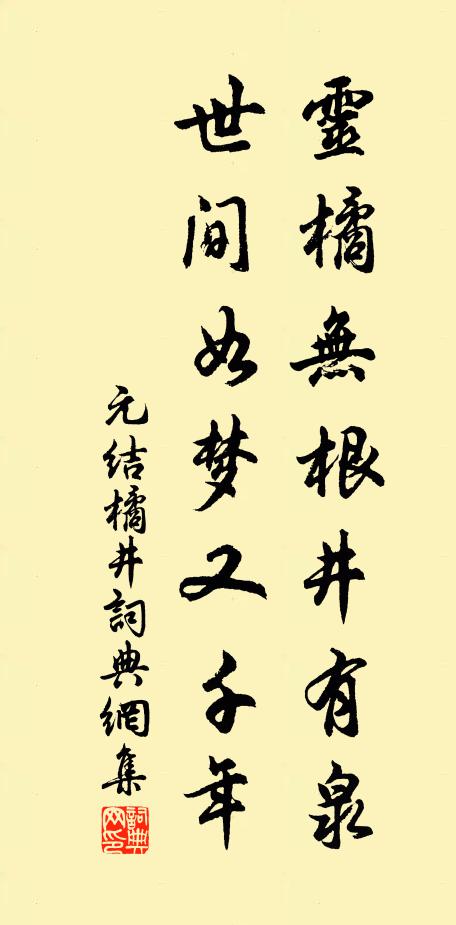 靈橘無根井有泉
世间如梦又千年
元结橘井詞典網集
詞典網印